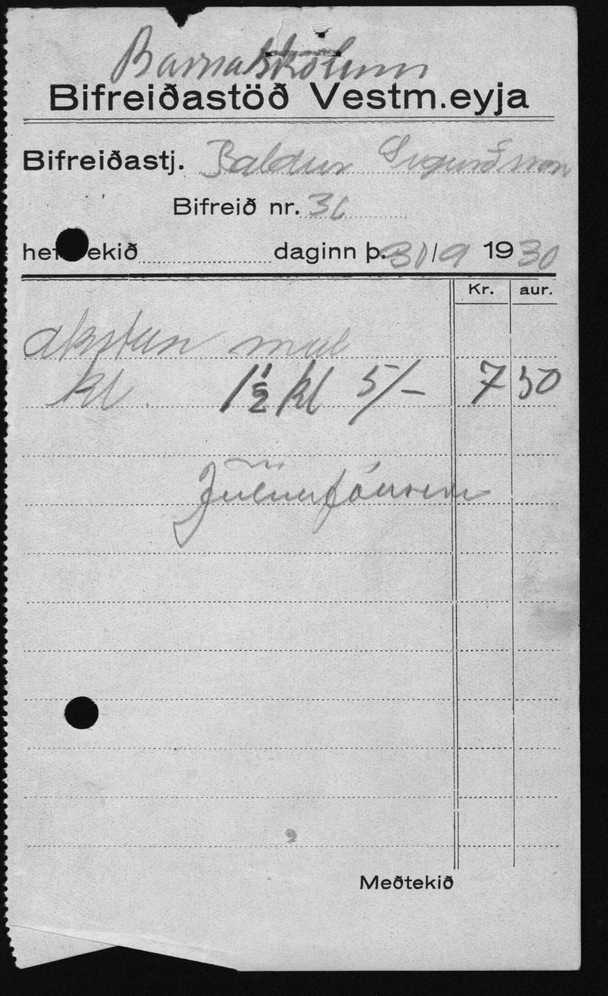 Barnaskólum
Bifreiðastöð Vestm.eyja
Bifreiðastj. Baldur Sigurðsson
Bifreið nr. 36
hef ekið daginn þ. 30/9 1930
Kr. aur.
akstur
kl. 1 1/2 kl 5/- 7 50
Meðtekið